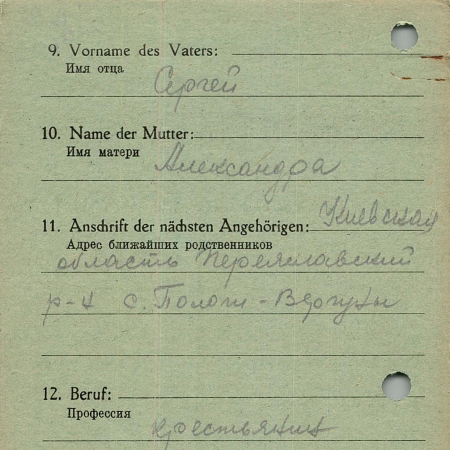 9. Vorname des Vaters:
Имя отца
Сергей
10. Name der Mutter:
Имя матери
Александра
11. Anschrift der nächsten Angehörigen: Киевская
Адрес ближайших родственников
область Переяславский
р-н с. Пологи-Вергуны
12. Beruf:
Профессия
крестьянин